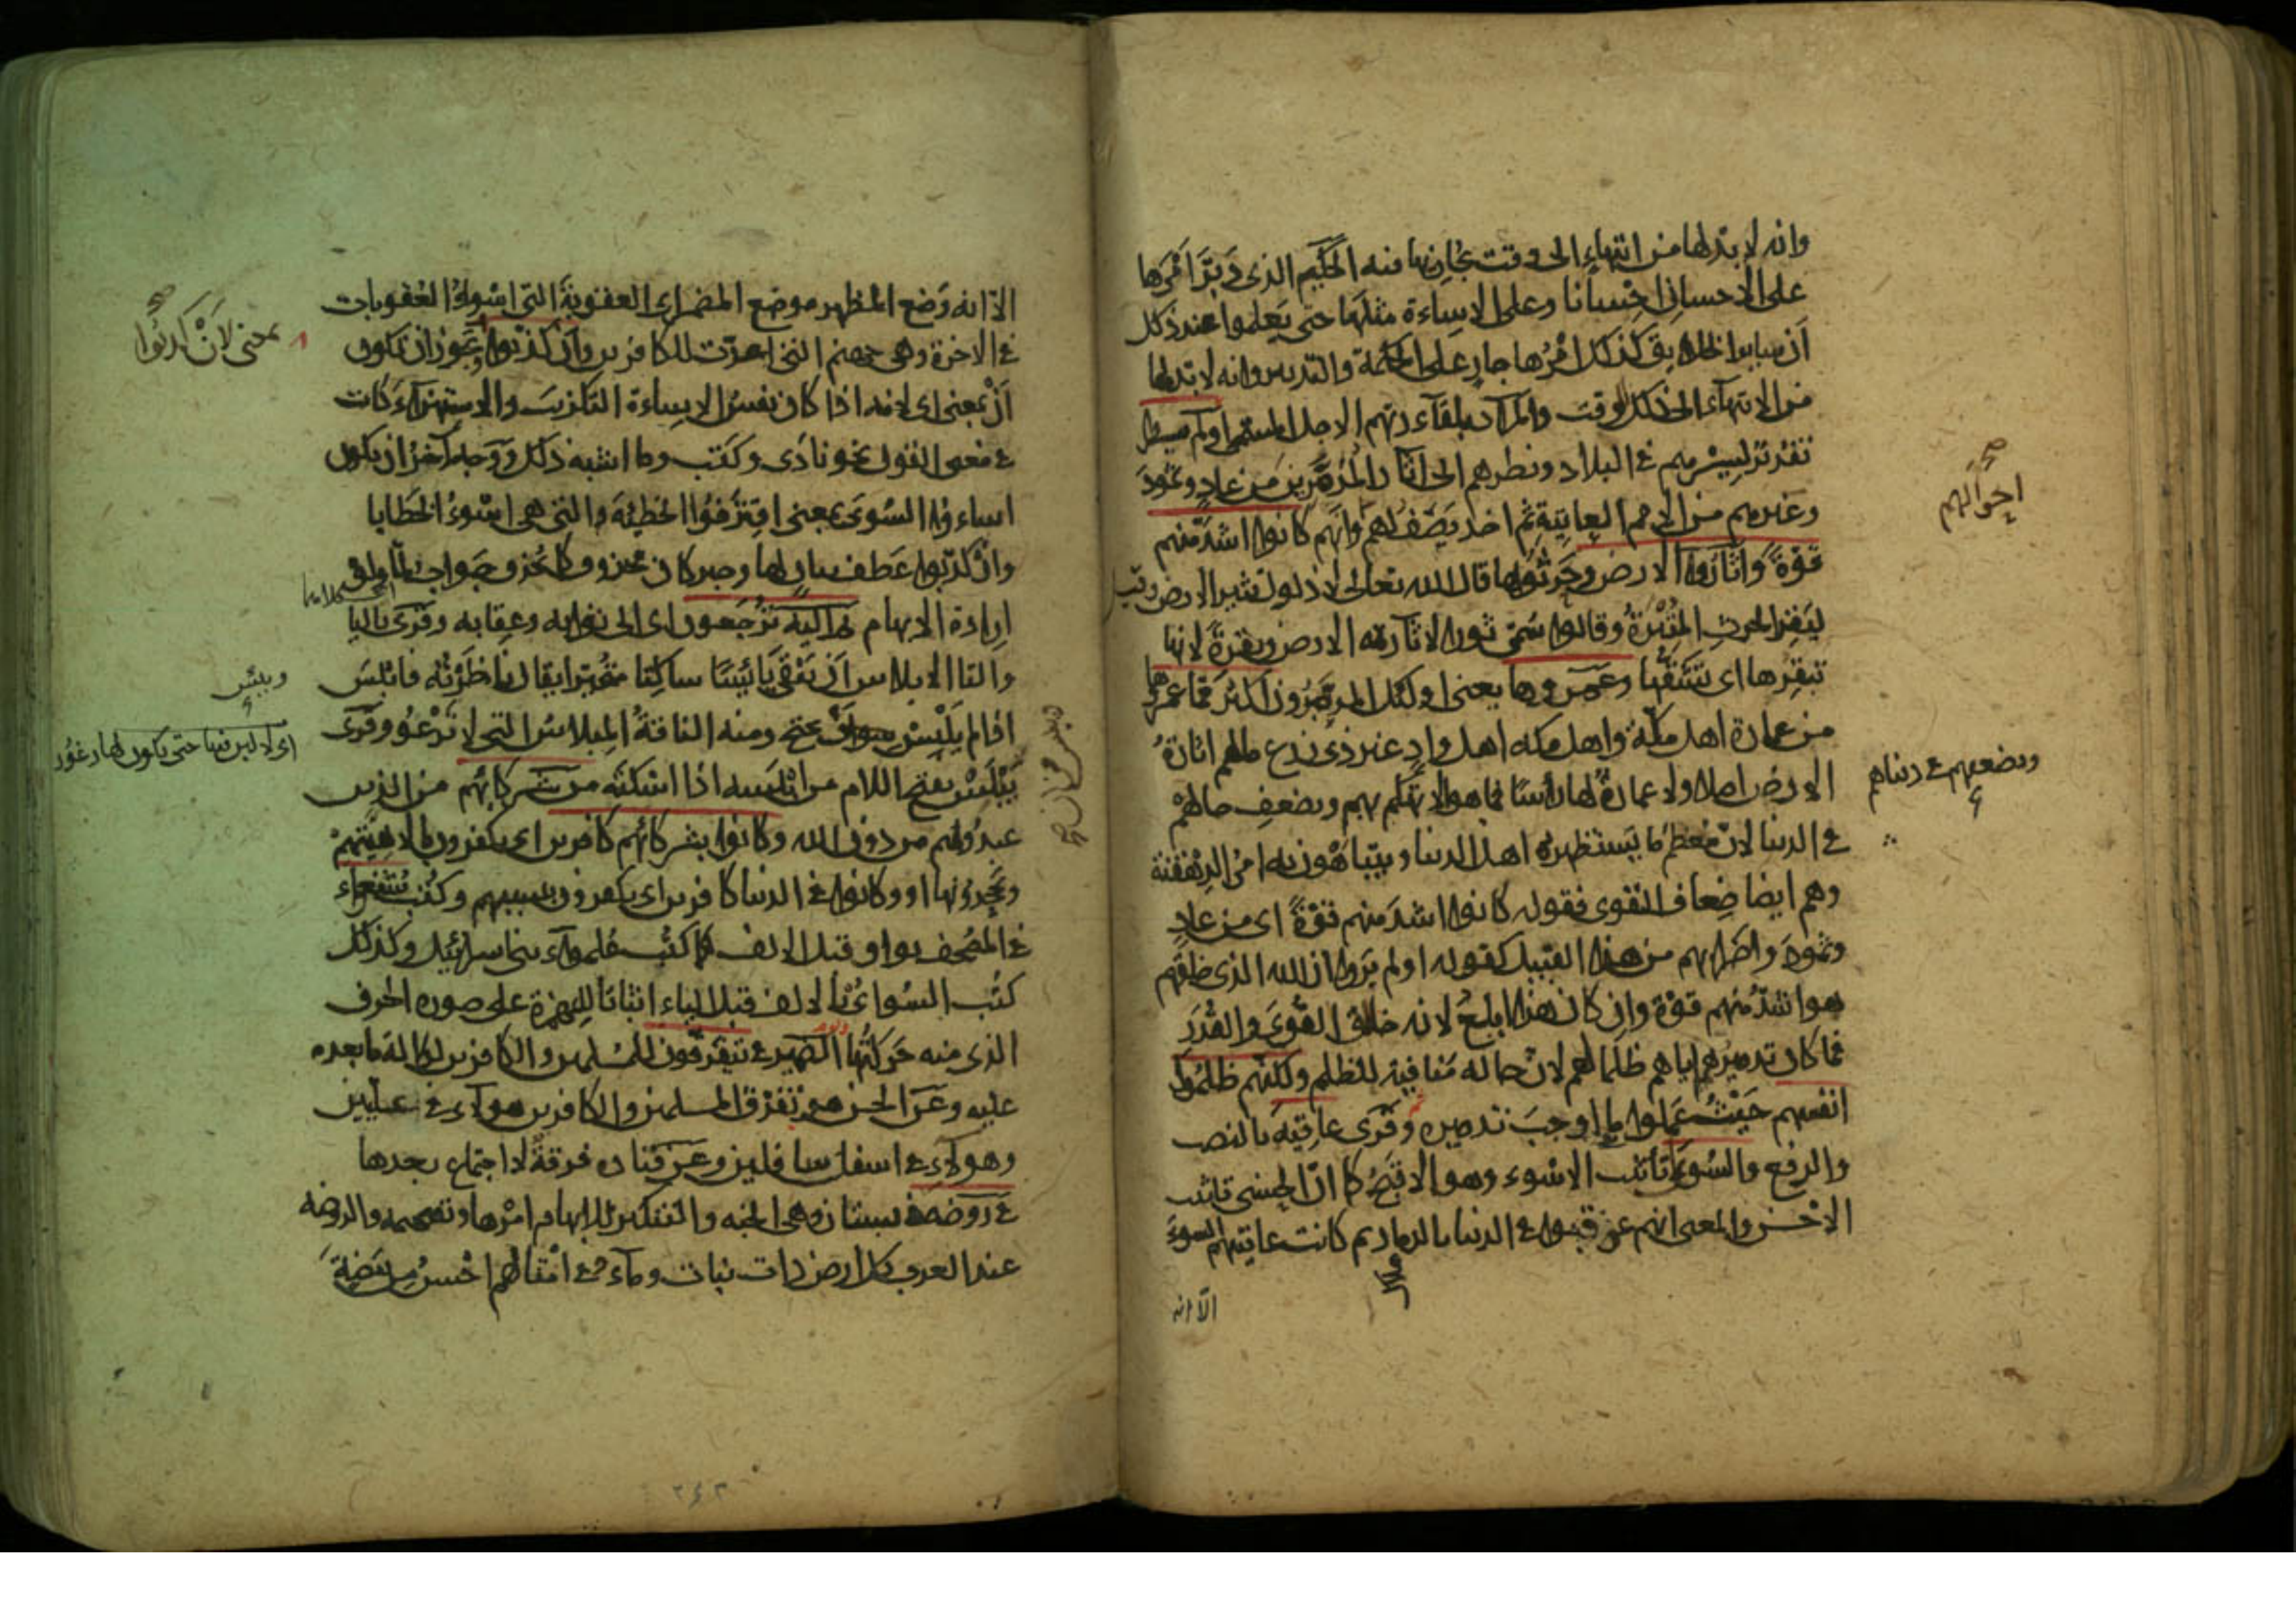 وانه لا بد لها من انتهاء الى وقت يجازيها فيه الحكيم الذي دبر امرها
على الاحسان احسانا وعلى الاساءة مثلها حتى يعلموا عند ذلك
ان سائر الخلايق كذلك امرها جار على الحكمة والتدبير وانه لا بد لها
من الانتهاء الى ذلك الوقت والمراد بلقاء ربهم الاجل المسمى اولم يسيروا
تقرير لسيرهم في البلاد ونظرهم الى اثار المدمرين من عاد وثمود
وغيرهم من الامم العاتية ثم اخذ يصف لهم وانهم كانوا اشد منهم
احوالهم
قوة واثاروا الارض وحرثوها قال الله تعالى لا ذلول تثير الارض وقيل
لبقر الحرث المثيرة وقالوا سمى ثورا لاثارته الارض وبقرة لانها
تبقرها اى تشقها وعمروها يعنى اولئك المدمرون اكثر مما عمروها
من عمارة اهل مكة واهل مكه اهل واد غير ذى زرع مالهم اثارة
الارض اصلا ولا عمارة لها راسا فما هو الا تهكم بهم وبضعف حالهم
وبضعفهم في دنياهم
في الدنيا لان معظم ما يستظهر به اهل الدنيا ويتباهون به امر الدهقنة
وهم ايضا ضعاف القوى فقوله كانوا اشد منهم قوة اى من عاد
وثمود واضرابهم من هذا القبيل كقوله اولم يروا ان الله الذى خلقهم
هو اشد منهم قوة وان كان هذا ابلغ لانه خالق القوى والقدر
فما كان تدميرهم اياهم ظلما لهم لان حاله منافية للظلم ولكنهم ظلموا
انفسهم حيث عملوا ما اوجب تدميرهم وقرى عاقبة بالنصب
والرفع والسوءى تانيث الاسوء وهو الاقبح كما ان الحسنى تانيث
الاحسن والمعنى انهم عوقبوا في الدنيا بالدمار ثم كانت عاقبتهم السوءى
الا انه
الا انه وضع المظهر موضع المضمر اى العقوبة التى اسوء العقوبات
في الاخرة وهى جهنم التى اعدت للكافرين وان كذبوا ويجوز ان تكون
بمعنى لان كذبوا
ان بمعنى اى لانه اذا كان تفسير الاساءة التكذيب والاستهزاء كانت
في معنى القول نحو نادى وكتب وما اشبه ذلك ووجه آخر ان يكون
اساءوا السوءى بمعنى اقترفوا الخطيئة التى هى اسوء الخطايا
وان كذبوا عطف بيان لها وخبر كان محذوف كما يحذف جواب لما ولو
ارادة الابهام ثم اليه ترجعون اى الى ثوابه وعقابه وقرى باليا
والتا الابلاس ان يبقى يائسا ساكتا متحيرا يقال ناظرته فابلس
ويئس
اذا لم ينبس ومنه الناقة المبلاس التى لا ترغو وقرى
يبلس بفتح اللام من ابلسه اذا اسكته من شركائهم من الذين
عبدوهم من دون الله وكانوا بشركائهم كافرين اى يكفرون بالاهيتهم
ويجحدونها او وكانوا في الدنيا كافرين اى يكفرون بسببهم وكتب شفعواء
في المصحف بواو قبل الالف كما كتب علمواء بنى اسرائيل وكذلك
كتب السواى بالالف قبل الياء اثباتا للهمزة على صورة الحرف
الذى منه حركتها الضمير في يتفرقون للمسلمين والكافرين لدلالة ما بعده
عليه وعن الحسن هو تفرق المسلمين والكافرين هولاء في عليين
وهولاء في اسفل سافلين وعن قتاده فرقة لا اجتماع بعدها
في روضة في بستان وهى الجنه والتنكير لابهام امرها وتفخيمه والروضه
عند العرب كل ارض ذات نبات وماء وفي امثالهم احسن من بيضة